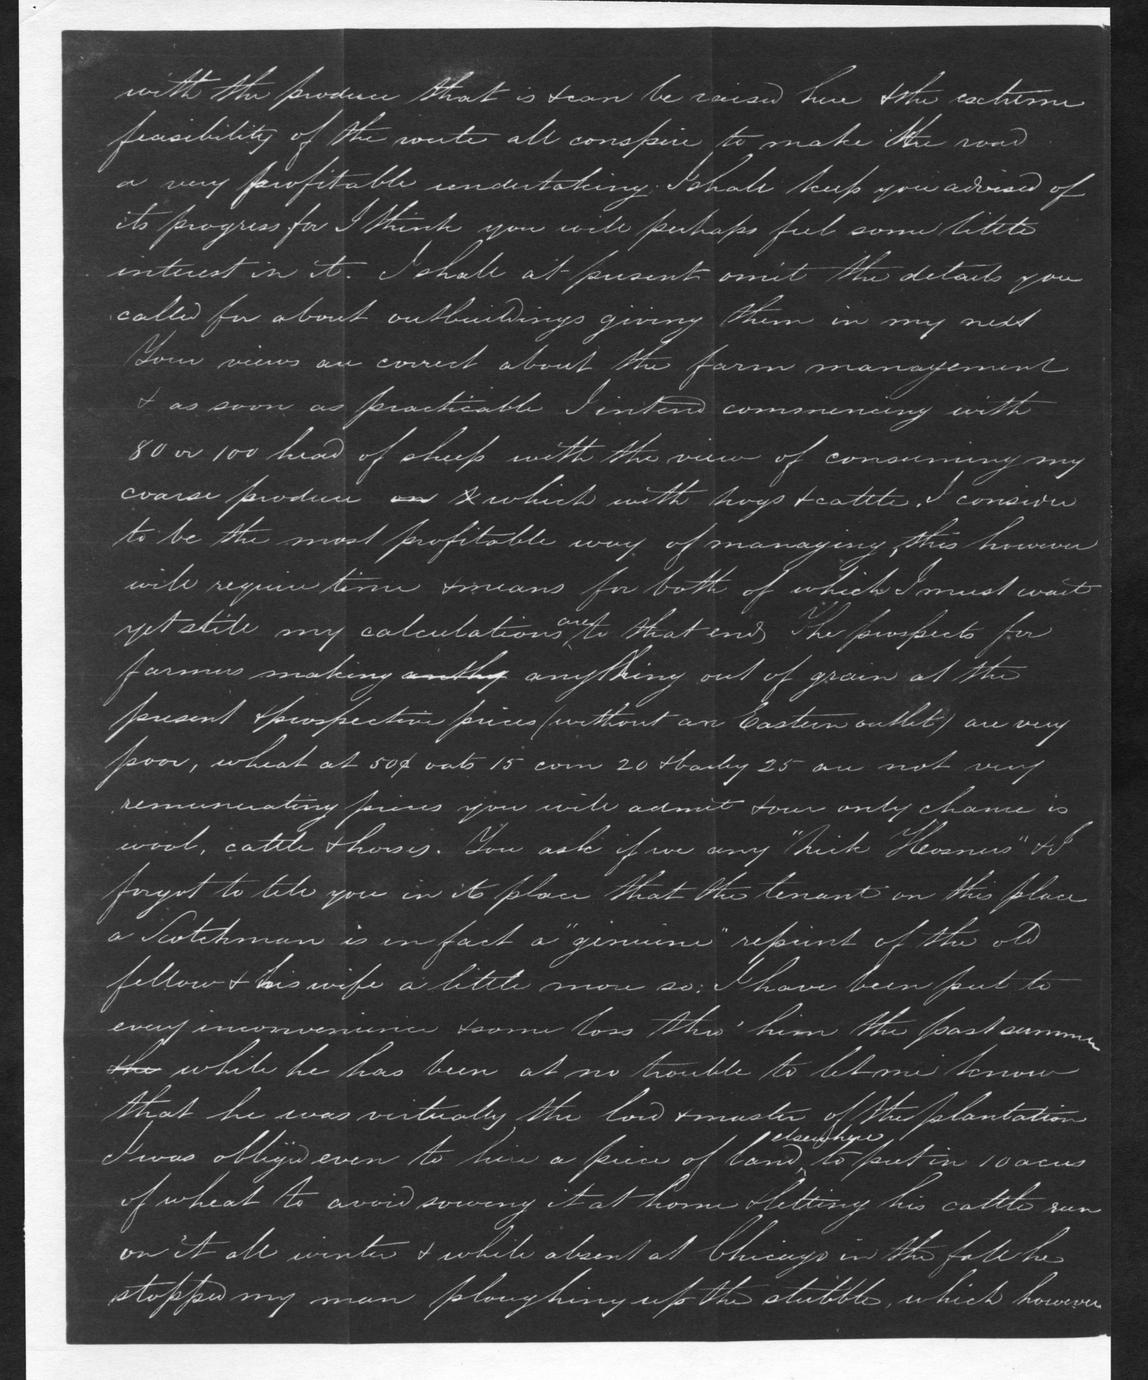 with the produce that is & can be raised here & the extreme
feasibility of the route all conspire to make the road
a very profitable undertaking. I shall keep you advised of
its progress for I think you will perhaps feel some little
interest in it. I shall at present omit the details you
called for about outbuildings giving them in my next
Your views are correct about the farm management
& as soon as practicable I intend commencing with
80 or 100 head of sheep with the view of consuming my
coarse produce on & which with hogs & cattle, I consider
to be the most profitable way of managing, this however
will require time & means for both of which I must wait
yet still my calculations are to that end, The prospects for
farmers making anthg anything out of grain at the
present & prospective prices (without an Eastern outlet) are very
poor, wheat at 50¢ oats 15 corn 20 & barley 25 are not very
remunerating prices you will admit & our only chance is
wool, cattle & horses. You ask if we any "Nick" & I
forgot to tell you in its place that the tenant on this place
a Scotchman is in fact a "genuine" reprint of the old
fellow & his wife a little more so: I have been put to
every inconvenience & some loss thro' him the past summer
the while he has been at no trouble to let me know
that he was virtually the lord & master of the plantation
I was obliged even to hire a piece of land elsewhere to put in 10 acres
of wheat to avoid sowing it at home & letting his cattle run
on it all winter & while absent at Chicago in the fall he
stopped my man ploughing up the stubble, which however